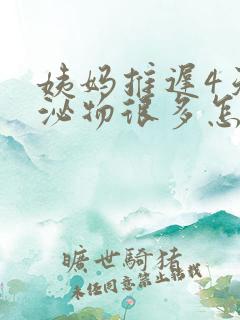 姨妈推遲4天
泌物很多怎
曠世騎猪
未任同意禁止转载